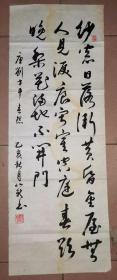 纱窗日落渐黄昏金屋无
人见泪痕寂寞空庭春欲
晚梨花满地不开门
唐刘方平春怨 乙亥秋月 书